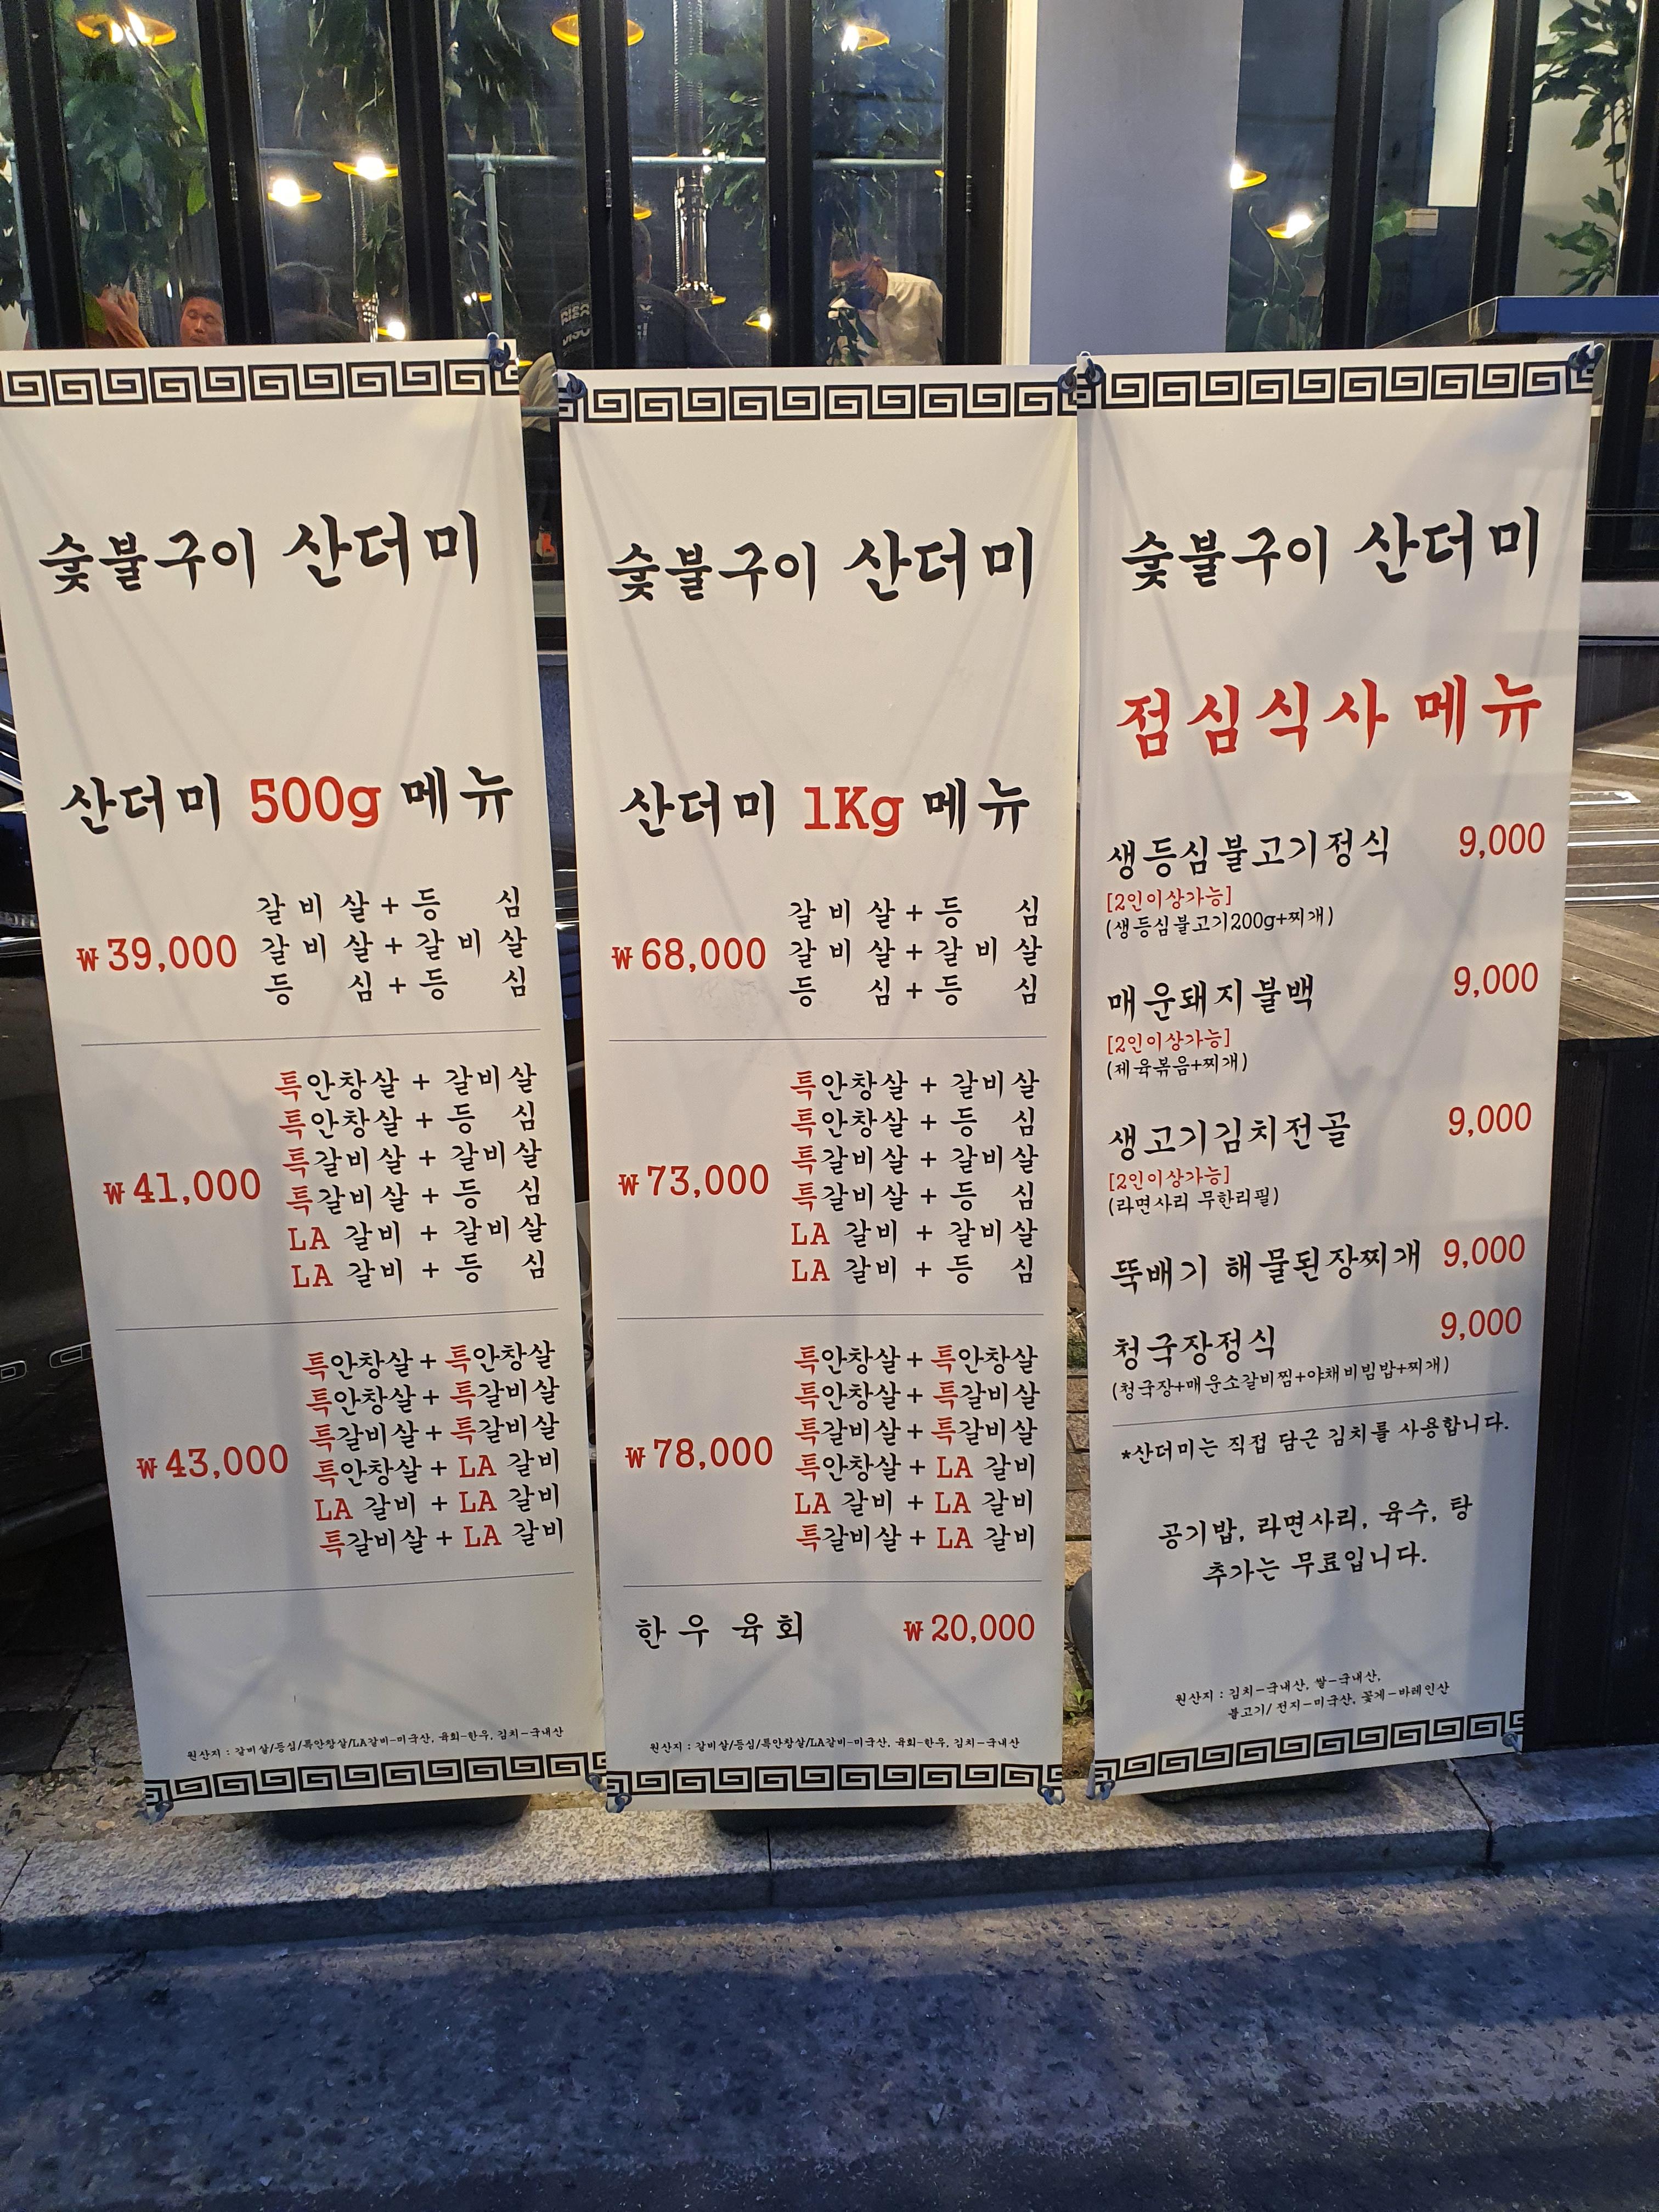 숯불구이 산더미
산더미 500g 메뉴
₩39,000
갈비살+등심
갈비살+갈비살
등심+등심
₩41,000
특안창살 + 갈비살
특안창살 + 등심
특갈비살 + 갈비살
특갈비살 + 등심
LA 갈비 + 갈비살
LA 갈비 + 등심
₩43,000
특안창살 + 특안창살
특안창살 + 특갈비살
특갈비살 + 특갈비살
특안창살 + LA 갈비
LA 갈비 + LA 갈비
특갈비살 + LA 갈비
원산지 : 갈비살/등심/특안창살/LA갈비-미국산, 육회-한우, 김치-국내산
숯불구이 산더미
산더미 1Kg 메뉴
₩68,000
갈비살+등심
갈비살+갈비살
등심+등심
₩73,000
특안창살 + 갈비살
특안창살 + 등심
특갈비살 + 갈비살
특갈비살 + 등심
LA 갈비 + 갈비살
LA 갈비 + 등심
₩78,000
특안창살 + 특안창살
특안창살 + 특갈비살
특갈비살 + 특갈비살
특안창살 + LA 갈비
LA 갈비 + LA 갈비
특갈비살 + LA 갈비
한우 육회 ₩20,000
원산지 : 갈비살/등심/특안창살/LA갈비-미국산, 육회-한우, 김치-국내산
숯불구이 산더미
점심식사 메뉴
생등심불고기정식 9,000
[2인이상가능]
(생등심불고기200g+찌개)
매운돼지불백 9,000
[2인이상가능]
(제육볶음+찌개)
생고기김치전골 9,000
[2인이상가능]
(라면사리 무한리필)
뚝배기 해물된장찌개 9,000
청국장정식 9,000
(청국장+매운소갈비찜+야채비빔밥+찌개)
*산더미는 직접 담근 김치를 사용합니다.
공기밥, 라면사리, 육수, 탕
추가는 무료입니다.
원산지 : 김치-국내산, 쌀-국내산,
불고기/ 전지-미국산, 꽃게-바레인산